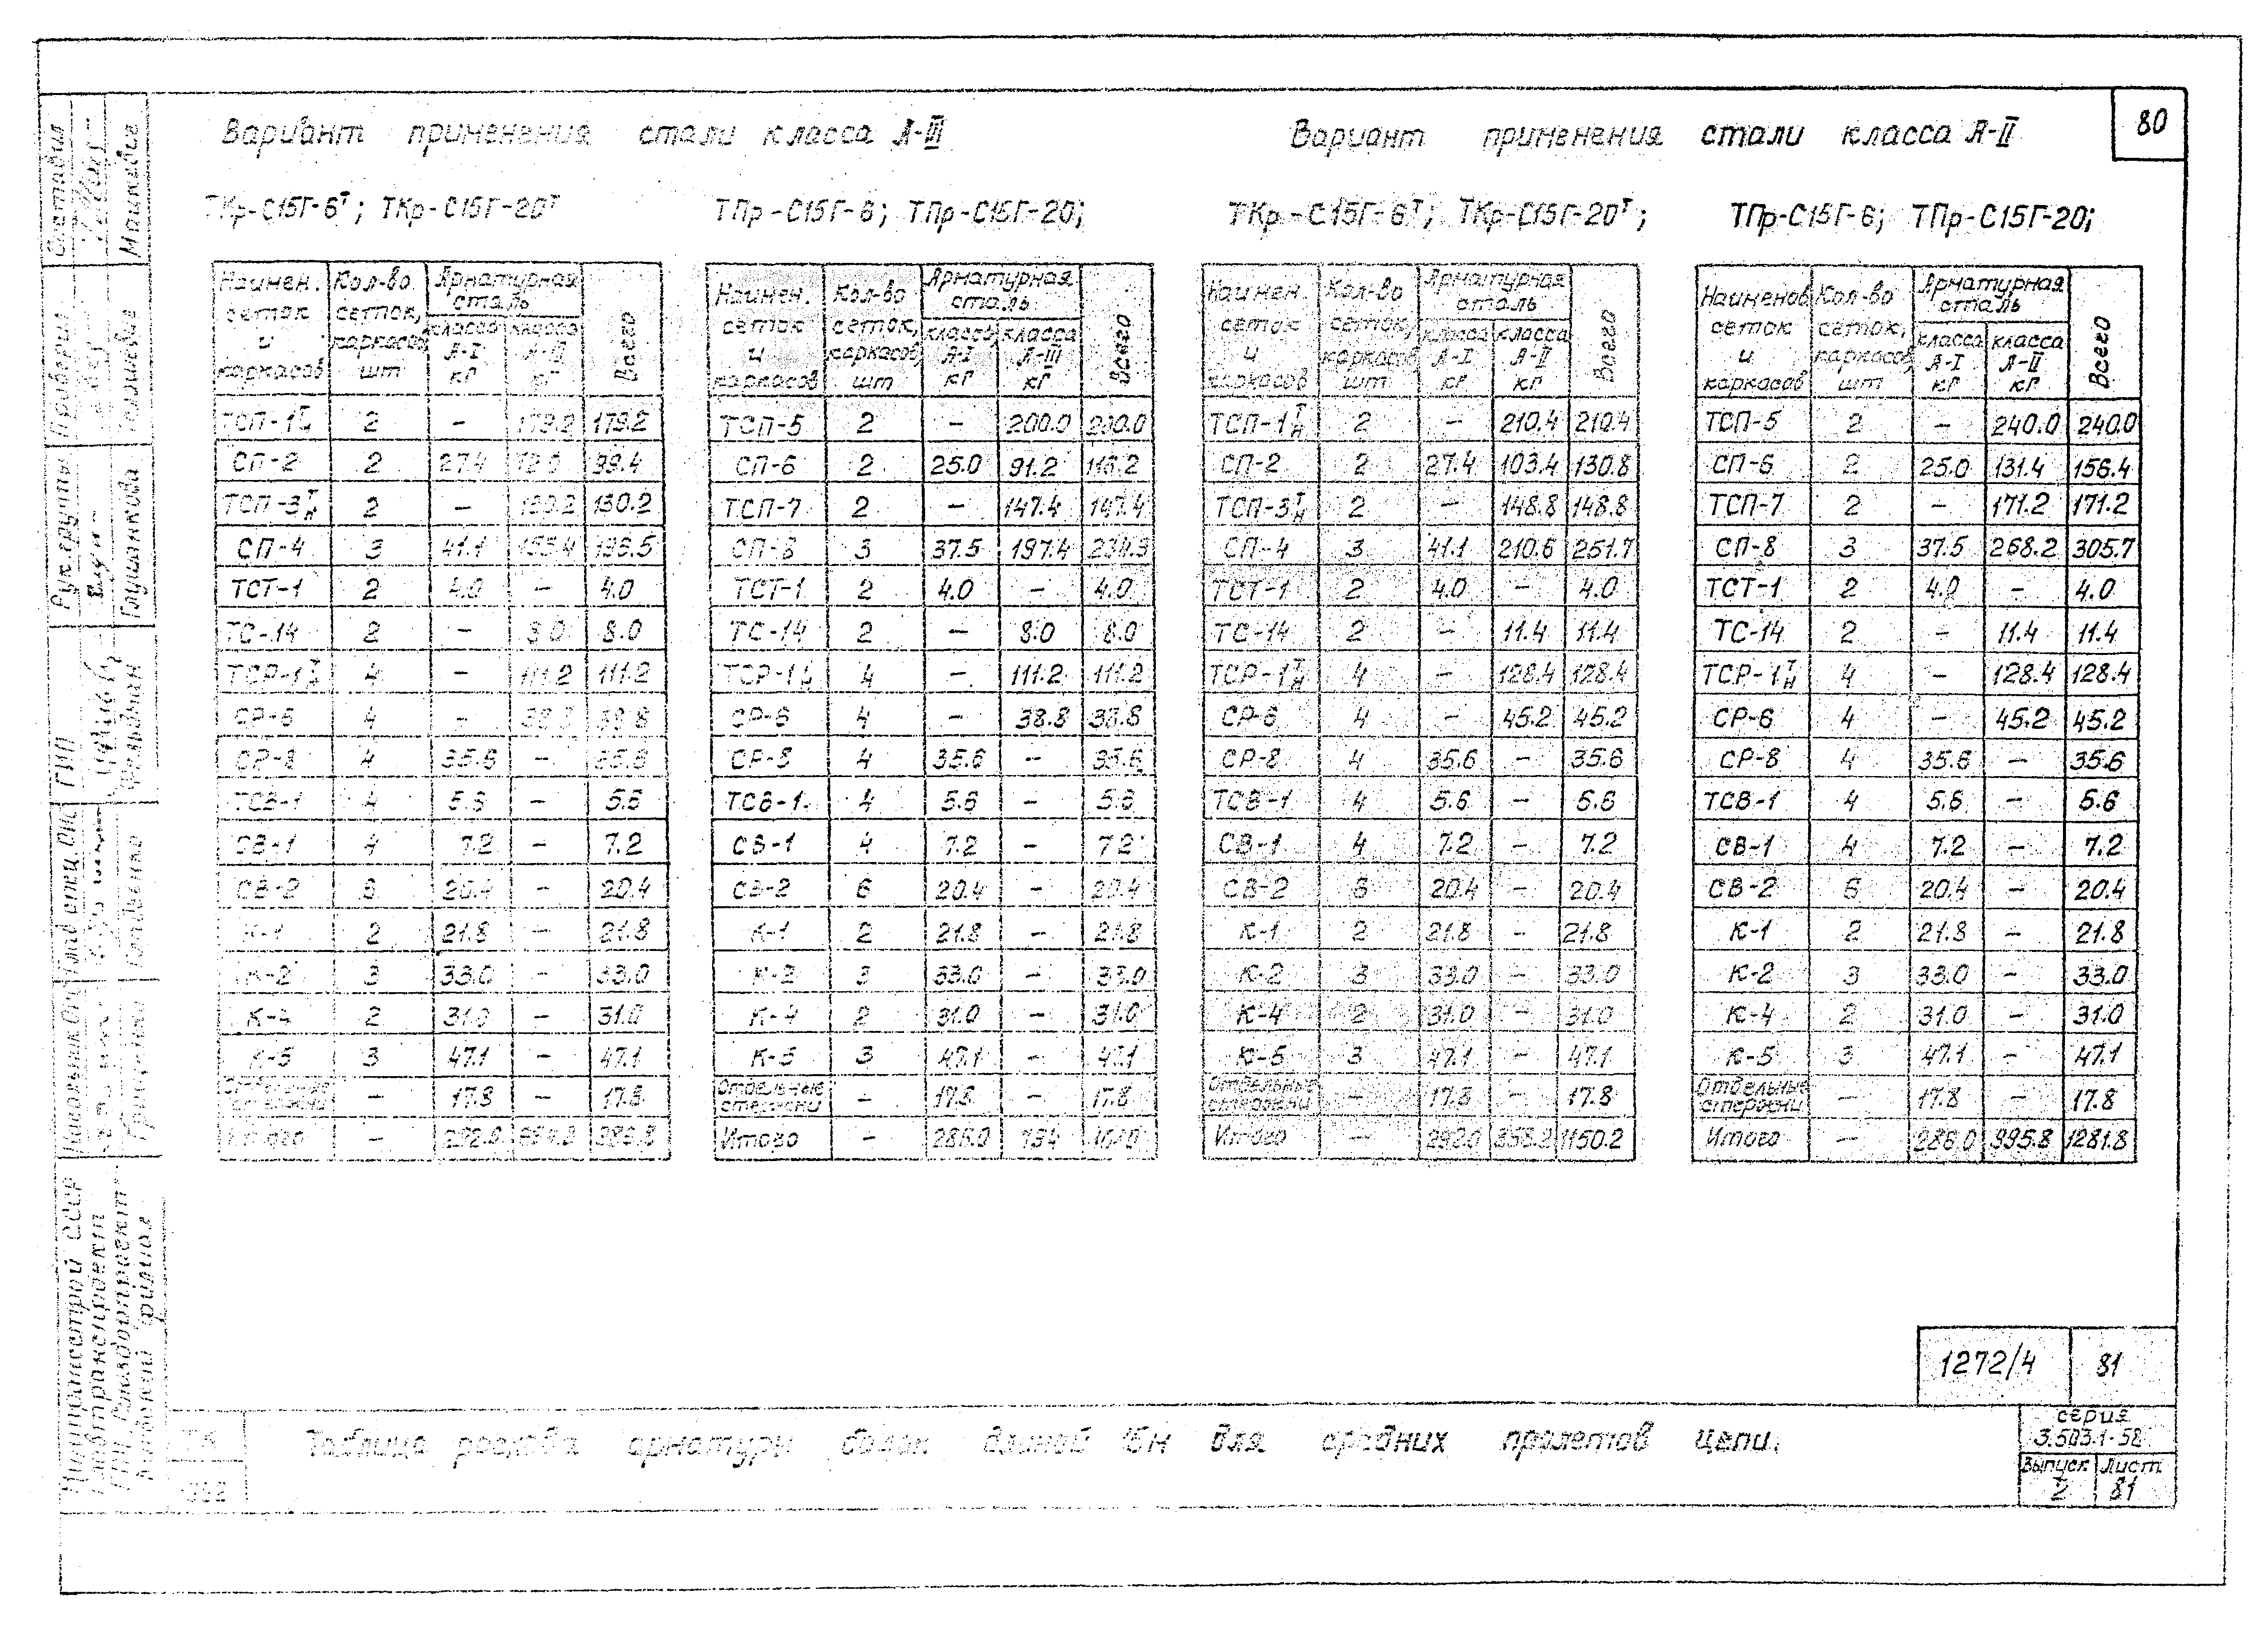 80
Вариант применения стали класса А-III
Вариант применения стали класса А-II
ТКр-С15Г-6Т; ТКр-С15Г-20Т
ТПр-С15Г-6; ТПр-С15Г-20;
ТКр-С15Г-6Т; ТКр-С15Г-20Т;
ТПр-С15Г-6; ТПр-С15Г-20;
Наимен. сеток и каркасов Кол-во сеток, каркасов шт Арматурная сталь класса А-I кг класса кг Всего
ТСП-1 2 – 179.2 179.2
СП-2 2 27.4 72.0 99.4
ТСП-3Т н 2 – 130.2 130.2
СП-4 3 41.1 155.4 196.5
ТСТ-1 2 4.0 – 4.0
ТС-14 2 – 8.0 8.0
ТСР-1 4 – 111.2 111.2
СР-6 4 – 38.8 38.8
СР-8 4 35.6 – 35.6
ТСВ-1 4 5.6 – 5.6
СВ-1 4 7.2 – 7.2
СВ-2 6 20.4 – 20.4
К-1 2 21.8 – 21.8
К-2 3 33.0 – 33.0
К-4 2 31.0 – 31.0
К-5 3 47.1 – 47.1
Отдельные стержни – 17.8 – 17.8
Итого –
Наимен. сеток и каркасов Кол-во сеток, каркасов шт Арматурная сталь класса А-I кг класса А-III кг Всего
ТСП-5 2 – 200.0 200.0
СП-6 2 25.0 91.2 116.2
ТСП-7 2 – 147.4 147.4
СП-8 3 37.5 197.4 234.9
ТСТ-1 2 4.0 – 4.0
ТС-14 2 – 8.0 8.0
ТСР-1 4 – 111.2 111.2
СР-6 4 – 38.8 38.8
СР-8 4 35.6 – 35.6
ТСВ-1. 4 5.6 – 5.6
СВ-1 4 7.2 – 7.2
СВ-2 6 20.4 – 20.4
К-1 2 21.8 – 21.8
К-2 3 33.0 – 33.0
К-4 2 31.0 – 31.0
К-5 3 47.1 – 47.1
Отдельные стержни – 17.8 – 17.8
Итого – 286.0 794
Наимен. сеток и каркасов Кол-во сеток, каркасов шт Арматурная сталь класса А-I кг класса А-II кг Всего
ТСП-1Т н 2 – 210.4 210.4
СП-2 2 27.4 103.4 130.8
ТСП-3Т н 2 – 148.8 148.8
СП-4 3 41.1 210.6 251.7
ТСТ-1 2 4.0 – 4.0
ТС-14 2 – 11.4 11.4
ТСР-1Т н 4 – 128.4 128.4
СР-6 4 – 45.2 45.2
СР-8 4 35.6 – 35.6
ТСВ-1 4 5.6 – 5.6
СВ-1 4 7.2 – 7.2
СВ-2 6 20.4 – 20.4
К-1 2 21.8 – 21.8
К-2 3 33.0 – 33.0
К-4 2 31.0 – 31.0
К-5 3 47.1 – 47.1
Отдельные стержни – 17.8 – 17.8
Итого – 292.0 858.2 1150.2
Наименов сеток и каркасов Кол-во сеток, каркасов, шт Арматурная сталь класса А-I кг класса А-II кг Всего
ТСП-5 2 – 240.0 240.0
СП-6 2 25.0 131.4 156.4
ТСП-7 2 – 171.2 171.2
СП-8 3 37.5 268.2 305.7
ТСТ-1 2 4.0 – 4.0
ТС-14 2 – 11.4 11.4
ТСР-1Т н 4 – 128.4 128.4
СР-6 4 – 45.2 45.2
СР-8 4 35.6 – 35.6
ТСВ-1 4 5.6 – 5.6
СВ-1 4 7.2 – 7.2
СВ-2 6 20.4 – 20.4
К-1 2 21.8 – 21.8
К-2 3 33.0 – 33.0
К-4 2 31.0 – 31.0
К-5 3 47.1 – 47.1
Отдельные стержни – 17.8 – 17.8
Итого – 286.0 995.8 1281.8
1272/4 81
ТК
Таблица расхода арматуры балок длиной 15м для средних пролетов цепи.
серия
3.503.1-58
Выпуск Лист
2 81
Составил
Мацкевич
Проверил
Рук.группы
Глушанкова
ГИП
Фельдман
Минтрансстрой СССР
Главтранспроект
Союздорпроект
Киевский филиал